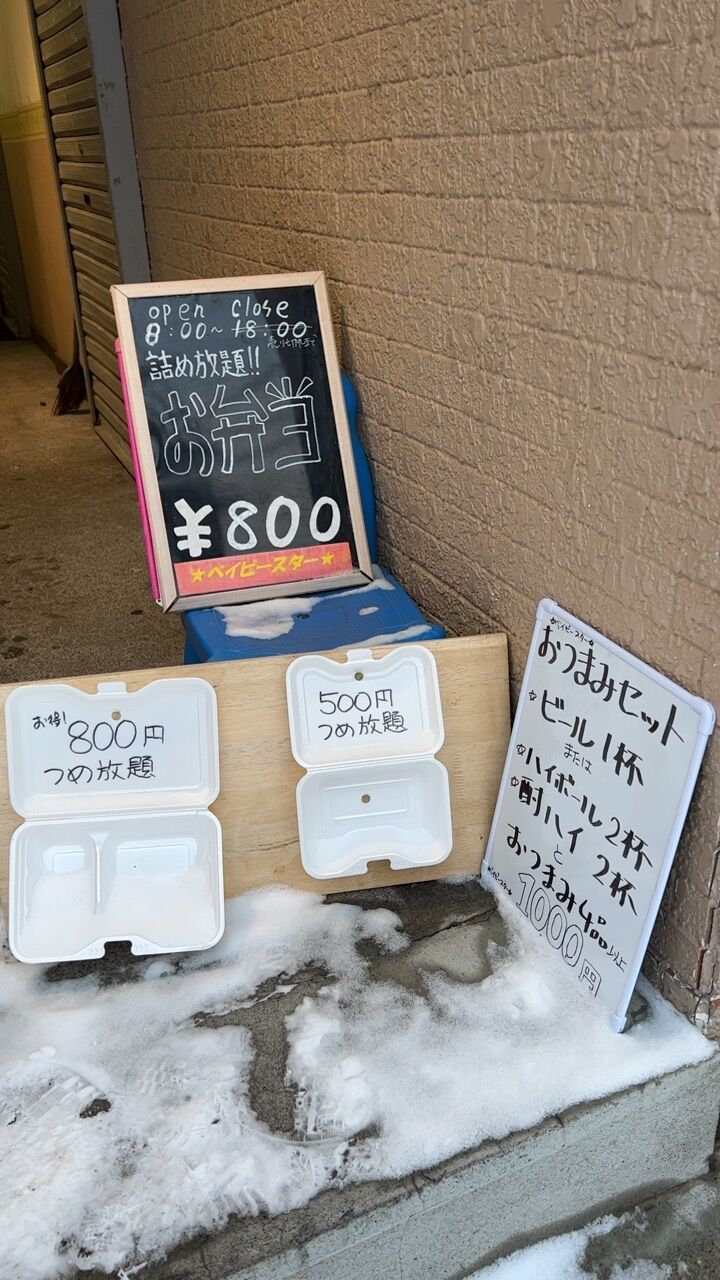 open close
8:00～18:00
売り切れまで
詰め放題!!
お弁当
¥800
★ベイビースター★
お得!
800円
つめ放題
500円
つめ放題
☆ベイビースター☆
おつまみセット
☆ビール1杯
または
☆ハイボール2杯
☆酎ハイ 2杯
と
おつまみ4品以上
☆ベイビースター☆
1000円